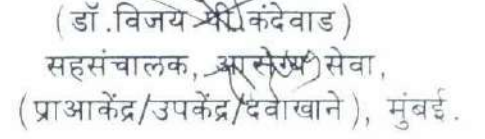 (डॉ.विजय पी.कंदेवाड )
सहसंचालक, आरोग्य सेवा,
(प्राआकेंद्र/उपकेंद्र/दवाखाने ), मुंबई.